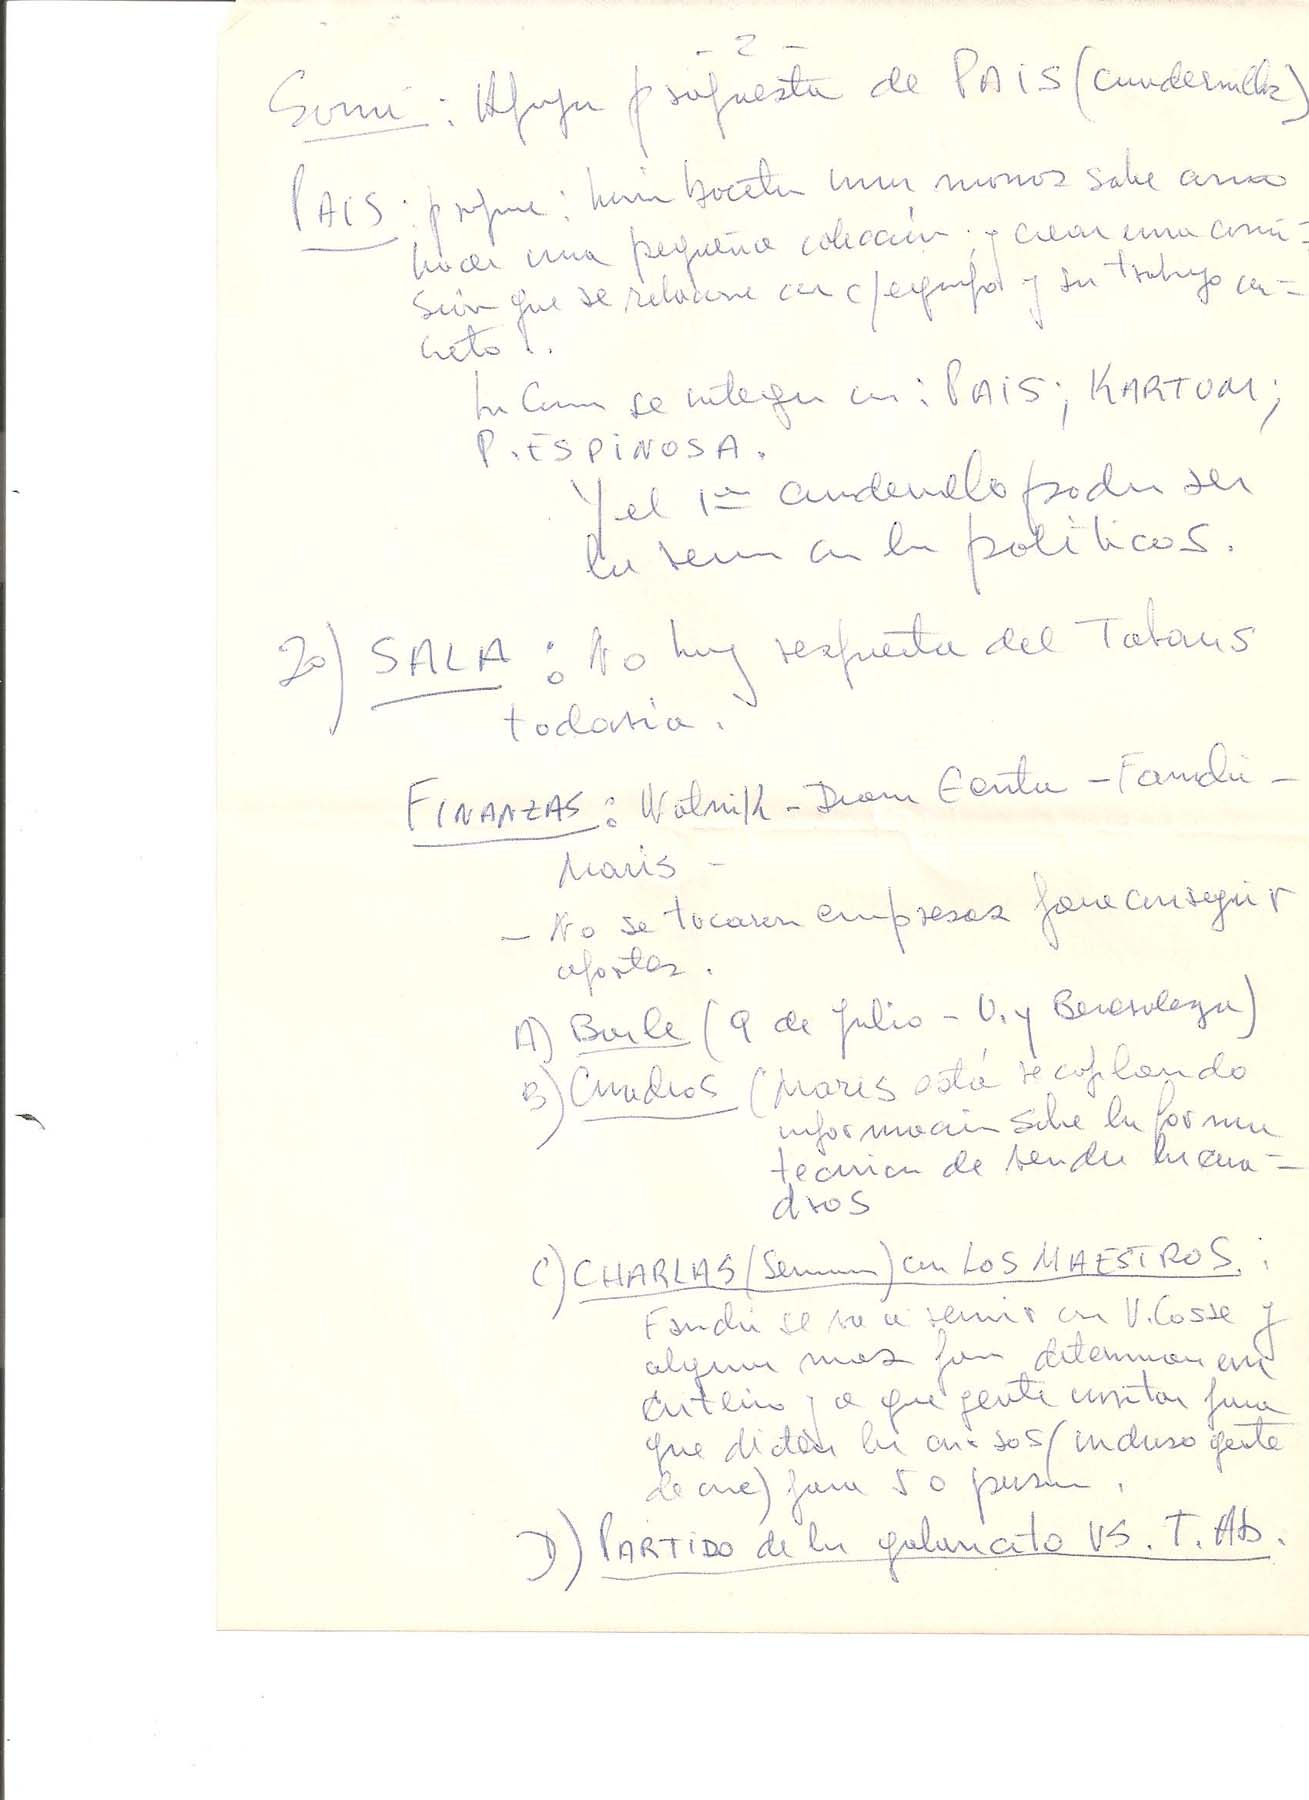 - 2 -
Somi: Apoya propuesta de PAIS (cuadernillos)
PAIS: propone: hacer boceto unas monos sobre como
hacer una pequeña colección; y crear una comi=
sión que se relacione con c/equipo y su trabajo con=
creto.
La Com se integra con: PAIS; KARTUM;
P. ESPINOSA.
Y el 1er cuadernillo podría ser
la reunion con los políticos.
20) SALA: No hay respuesta del Tabaris
todavía.
FINANZAS: Wolnik - Evita - Fandi -
Maris -
- No se tocaron empresas para conseguir
aportes.
A) Baile (9 de Julio - U. y Benevolenza)
B) Cuadros (Maris está recopilando
información sobre la forma
técnica de vender los cua=
dros
C) CHARLAS (Semin) con LOS MAESTROS:
Fandi se va a reunir con V. Cosse y
alguien mas para determinar un
criterio y a que gente invitar para
que dicten los cursos (incluso gente
de cine) para 50 person.
D) PARTIDO de los galancito VS. T. Ab.